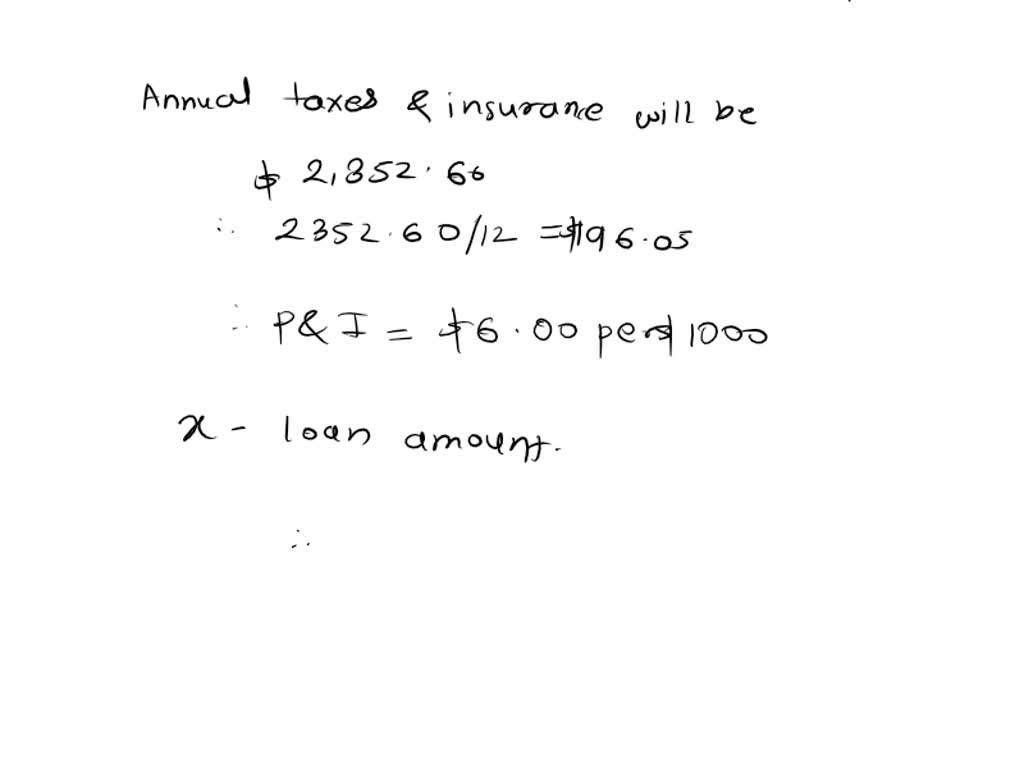 Annual taxes & insurance will be
$ 2,352.60
∴ 2352.60/12 = $196.05
∴ P & I = $6.00 per $1000
x - loan amount.
∴